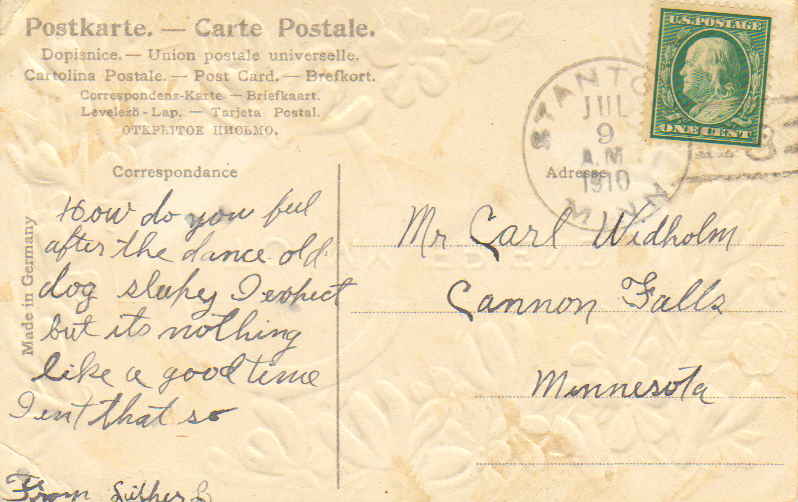 Postkarte. — Carte Postale.
Dopisnice. — Union postale universelle.
Cartolina Postale. — Post Card. — Brefkort.
Correspondenz-Karte — Briefkaart.
Levelező-Lap. — Tarjeta Postal.
ОТКРЫТОЕ ПИСЬМО.
U.S. POSTAGE
ONE CENT
STANTO
JUL
9
A.M.
1910
MINN
Correspondance
Adresse
Made in Germany
How do you feel
after the dance old
dog sleepey I expect
but its nothing
like a good time
I ent that so
From Luther
Mr Carl Widholm
Cannon Falls
Minnesota